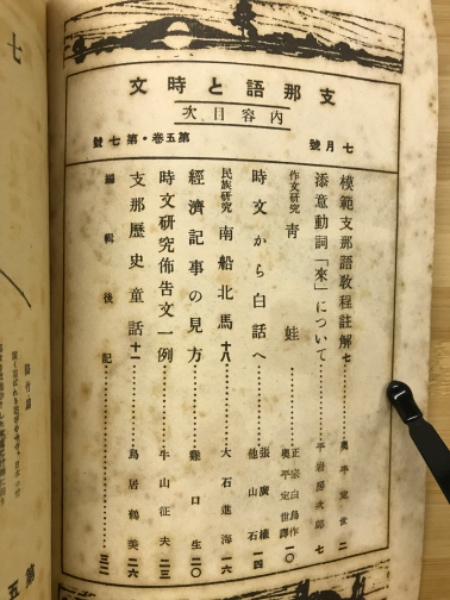 支那語と時文
内容目次
七月號
第五卷・第七號
模範支那語教程註解七……奥平定世 二
添意動詞「來」について……平岩房次郎 七
作文硏究 靑蛙……正宗白鳥作 奥平定世譯 一〇
時文から白話へ……張廣權 他山石 一四
民族硏究 南船北馬十八……大石進海 一六
經濟記事の見方……難口生 二〇
時文硏究佈告文一例……牛山征夫 二三
支那歷史童話十一……鳥居鶴美 二六
編輯後記……三二
七
第
五